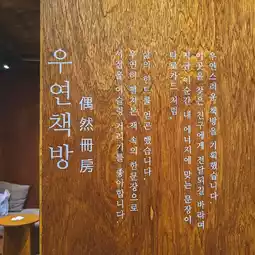 우연책방
偶然冊房
서점을 어슬렁 거리기를 좋아합니다.
우연히 펼치는 책 속의 한문장으로
삶의 힌트를 얻곤 했습니다.
타로카드처럼
지금 이 순간 내 에너지에 맞는 문장이
이곳을 찾은 친구에게 전달되길 바라며
우연스러운 책방을 기획했습니다